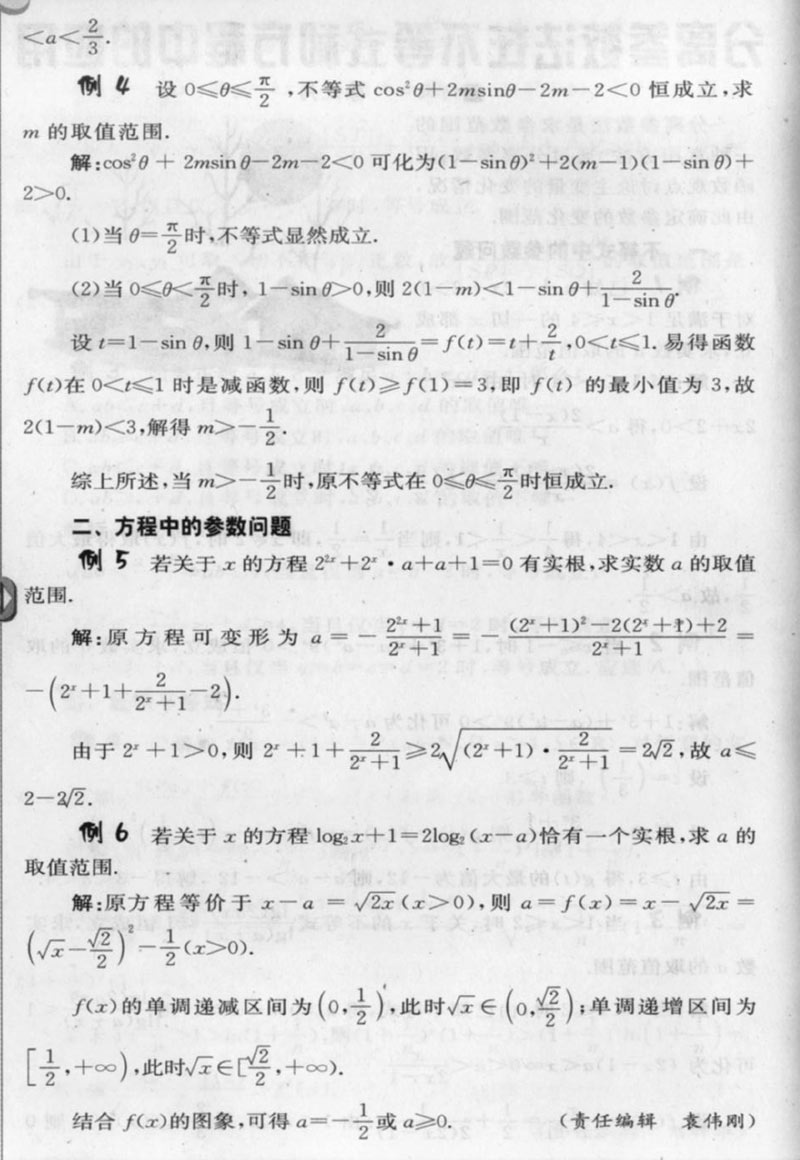 <a<2/3.
例4 设 0≤θ≤π/2，不等式 cos²θ+2msinθ-2m-2<0 恒成立，求
m 的取值范围.
解：cos²θ + 2msin θ-2m-2<0 可化为(1-sin θ)²+2(m-1)(1-sin θ)+
2>0.
(1)当 θ=π/2时，不等式显然成立.
(2)当 0≤θ<π/2时，1-sin θ>0，则 2(1-m)<1-sin θ+2/(1-sin θ).
设 t=1-sin θ，则 1-sin θ+2/(1-sin θ)=f(t)=t+2/t，0<t≤1. 易得函数
f(t)在 0<t≤1 时是减函数，则 f(t)≥f(1)=3，即 f(t) 的最小值为 3，故
2(1-m)<3，解得 m>-1/2.
综上所述，当 m>-1/2时，原不等式在 0≤θ≤π/2时恒成立.
二 方程中的参数问题
例5 若关于 x 的方程 2²ˣ+2ˣ·a+a+1=0 有实根，求实数 a 的取值
范围.
解：原方程可变形为 a = -(2²ˣ+1)/(2ˣ+1) = -((2ˣ+1)²-2(2ˣ+1)+2)/(2ˣ+1) =
-(2ˣ+1+2/(2ˣ+1)-2).
由于 2ˣ+1>0，则 2ˣ+1+2/(2ˣ+1)≥2√((2ˣ+1)·2/(2ˣ+1))=2√2，故 a≤
2-2√2.
例6 若关于 x 的方程 log₂x+1=2log₂(x-a)恰有一个实根，求 a 的
取值范围.
解：原方程等价于 x-a = √2x (x>0)，则 a=f(x)=x-√2x =
(√x-√2/2)²-1/2(x>0).
f(x)的单调递减区间为(0,1/2)，此时√x∈(0,√2/2)；单调递增区间为
[1/2,+∞)，此时√x∈[√2/2,+∞).
结合 f(x)的图象，可得 a=-1/2或 a≥0. （责任编辑 袁伟刚）